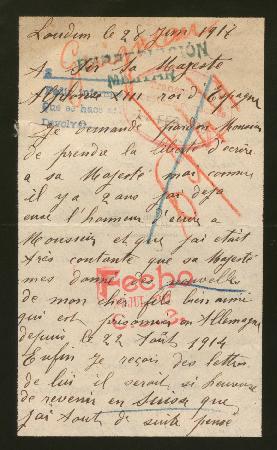 Loudun le 28 Juin 1917
A Sa Majesté
Alphonse XIII roi d'Espagne
Je demande pardon Monsieur
de prendre la liberté d'écrire
a sa Majesté mai comme
il y a 2 ans j'ai deja
eu l'honneur d'ecrire a
Monsieur et que j'ai était
très contante que sa Majesté
mes donné des nouvelles
de mon cher fils bien aimé
qui est prisonnier en Allemagne
depuis le 22 Août 1914
Enfin je reçois des lettres
de lui il serait si heureux
de revenir en Suisse que
j'ai tout de suite pensé
MILITAR
Fecho